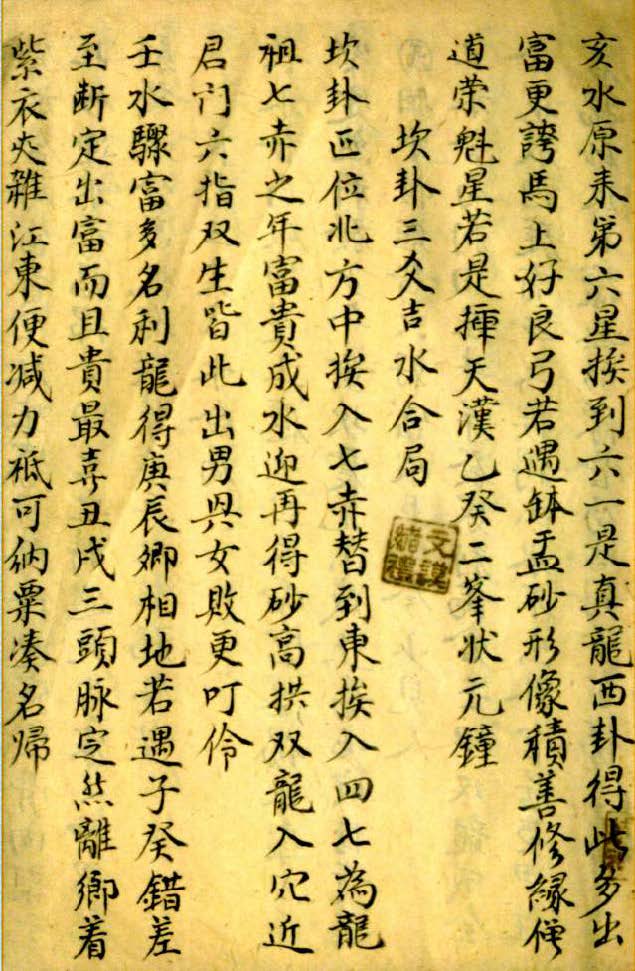 亥水原来第六星挨到六一是真龍西卦得此多出
富更誇馬上好良弓若遇缽盂砂形像積善修緣僧
道荣魁星若是揷天漢乙癸二峯状元鐘
坎卦三爻吉水合局
坎卦正位北方中挨入七赤替到東挨入四七為龍
祖七赤之年富貴成水迎再得砂高拱双龍入穴近
君门六指双生皆此出男與女敗更叮伶
壬水驟富多名利龍得庚辰鄉相地若遇子癸錯差
至断定出富而且貴最喜丑戌三頭脉定然離鄉着
紫衣夾雜江東便减力祗可納粟凑名歸